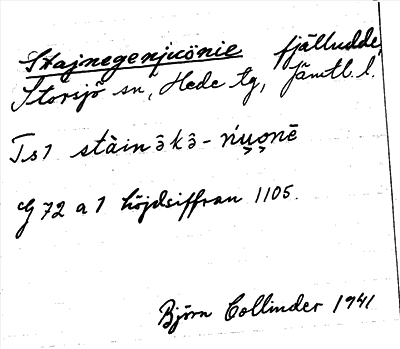 Stajnegenjuönie fjälludde,
Storsjö sn, Hede tg, Jämtl. l.
Ts1 stàinəkə-ńu̯o̯nē
G 72 a 1 höjdsiffran 1105.
Björn Collinder 1941